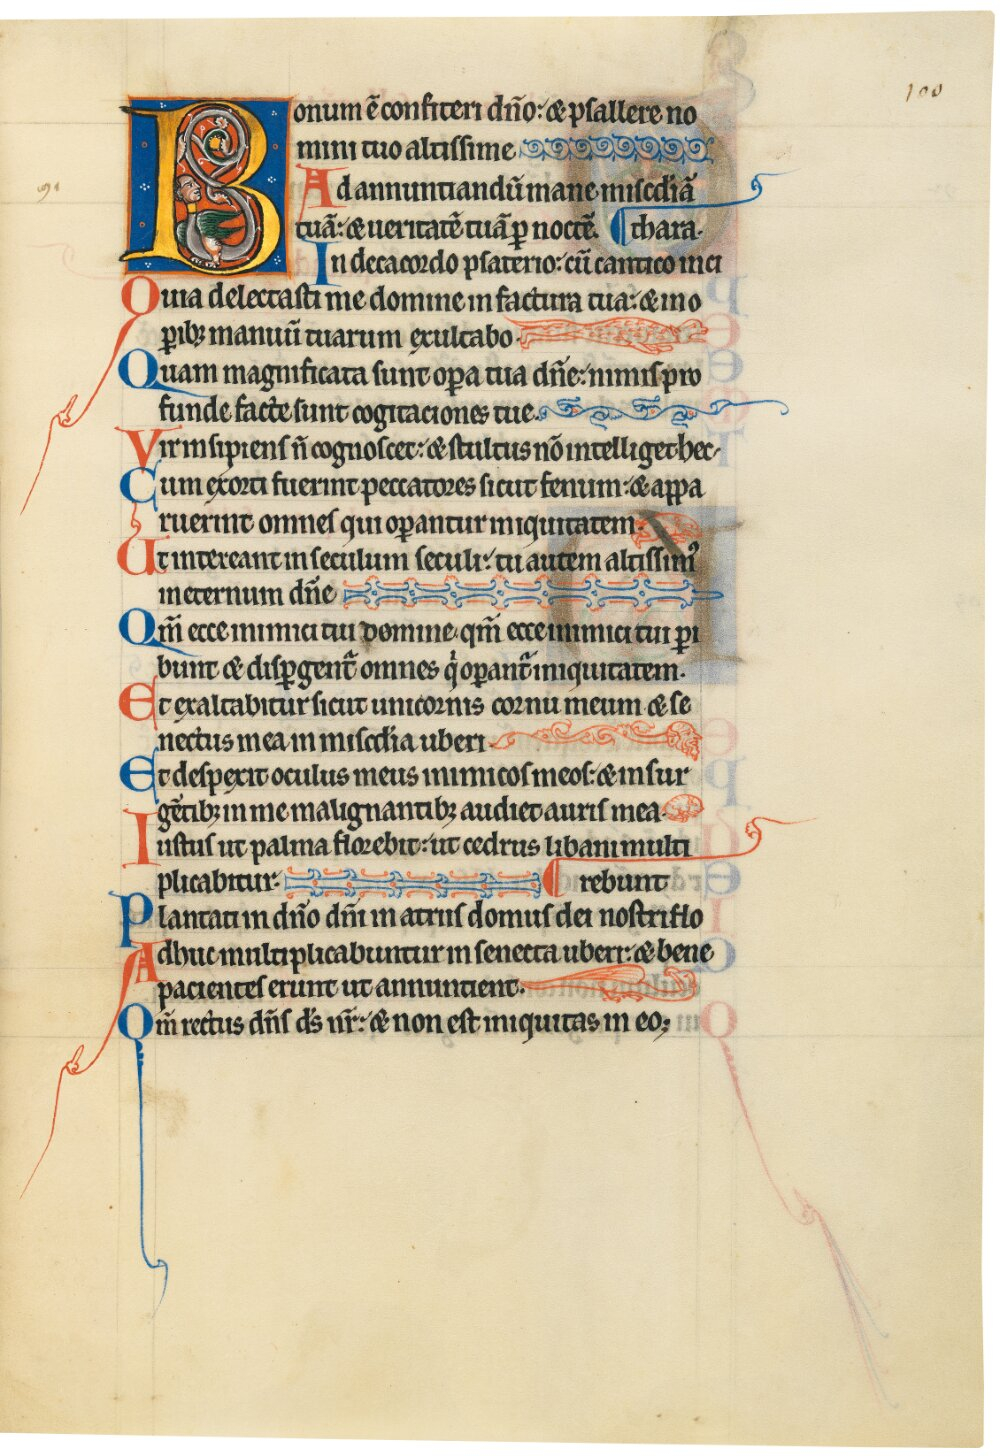 100
Bonum ē confiteri dño: & psallere no
mini tuo altissime
91
Ad annuntiandū mane miscdiā
tuā: & ueritatē tuā p noctē. thara.
In decacordo psaterio: cū cantico in ci
Quia delectasti me domine in factura tua: & in o
pibꝫ manuū tuarum exultabo.
Quam magnificata sunt opa tua dñe: nimis pro
funde facte sunt cogitaciones tue.
Vir insipiens ñ cognoscet: & stultus nō intelliget hec.
Cum exorti fuerint peccatores sicut fenum: & appa
ruerint omnes qui opantur iniquitatem.
Ut intereant in seculum seculi: tu autem altissimꝰ
ineternum dñe
Qm̄ ecce inimici tui domine. qm̄ ecce inimici tui pi
bunt & dispgent̄ omnes q̇ opant̄ iniquitatem.
Et exaltabitur sicut unicornis cornu meum & se
nectus mea in miscdia uberi
Et despexit oculus meus inimicos meos: & in sur
gētibꝫ in me malignantibꝫ audiet auris mea.
Iustus ut palma florebit: ut cedrus libani multi
plicabitur. rebunt
Plantati in dño dñi in atriis domus dei nostri flo
Adhuc multiplicabuntur in senecta uberi: & bene
pacientes erunt ut annuncient.
Qm̄ rectus dñs ds nr̄: & non est iniquitas in eo;